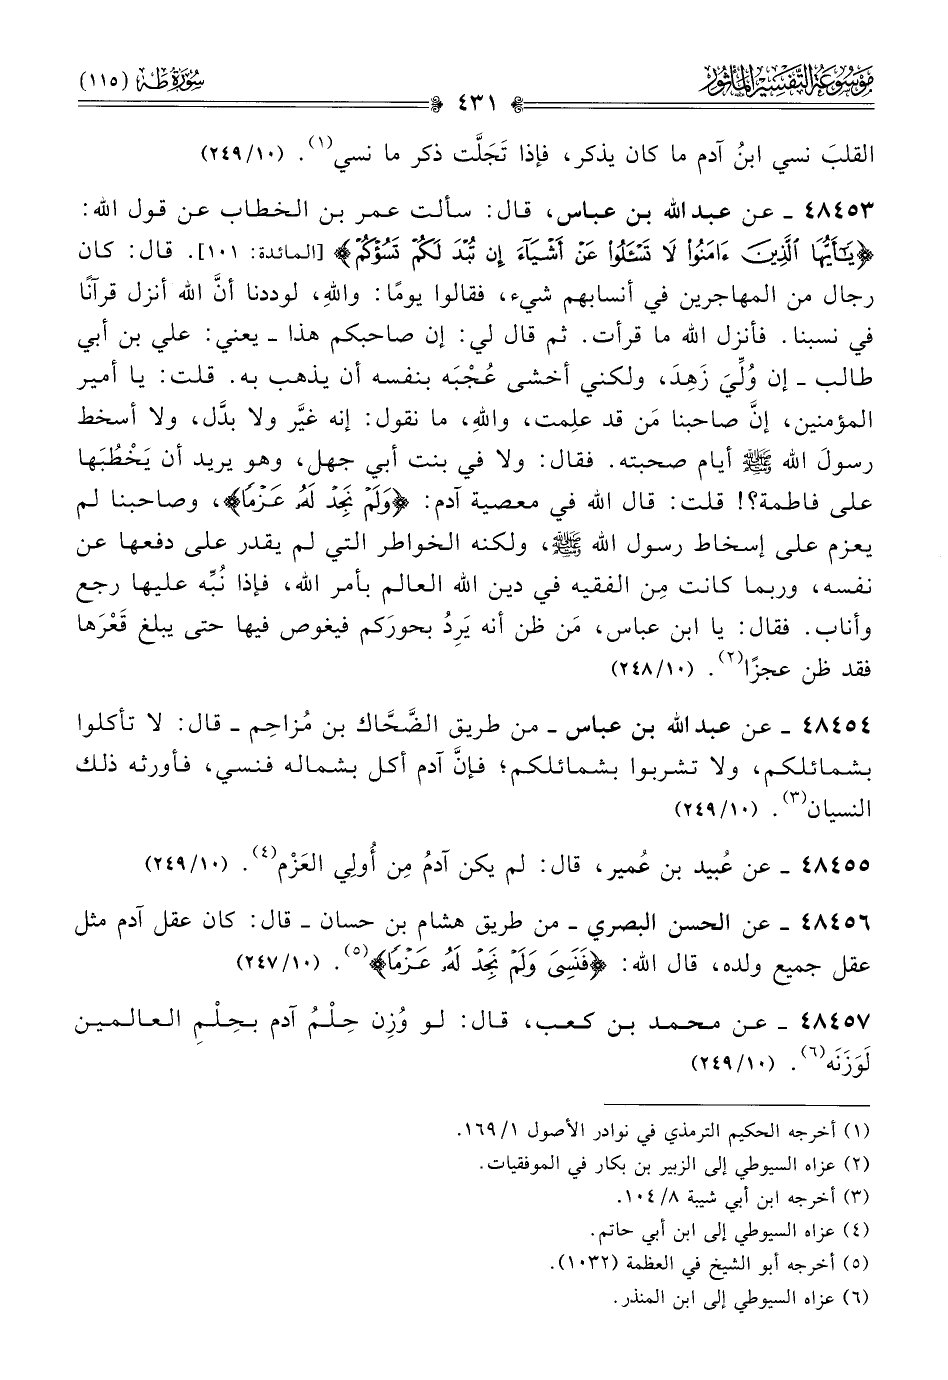 مَوْسُوعَةُ التَّفْسِيْرِ المَأْثُوْر
سُوْرَةُ طه (١١٥)
٤٣١
القلبَ نسي ابنُ آدم ما كان يذكر، فإذا تَجَلَّت ذكر ما نسي(١). (١٠/٢٤٩)
٤٨٤٥٣ ـ عن عبد الله بن عباس، قال: سألت عمر بن الخطاب عن قول الله:
﴿يَٰٓأَيُّهَا ٱلَّذِينَ ءَامَنُوا۟ لَا تَسْـَٔلُوا۟ عَنْ أَشْيَآءَ إِن تُبْدَ لَكُمْ تَسُؤْكُمْ﴾ [المائدة: ١٠١]. قال: كان
رجال من المهاجرين في أنسابهم شيء، فقالوا يومًا: واللهِ، لوددنا أنَّ الله أنزل قرآنًا
في نسبنا. فأنزل الله ما قرأت. ثم قال لي: إن صاحبكم هذا ـ يعني: علي بن أبي
طالب ـ إن وُلِّيَ زَهِدَ، ولكني أخشى عُجْبَه بنفسه أن يذهب به. قلت: يا أمير
المؤمنين، إنَّ صاحبنا مَن قد علِمت، واللهِ، ما نقول: إنه غيَّر ولا بدَّل، ولا أسخط
رسولَ الله ﷺ أيام صحبته. فقال: ولا في بنت أبي جهل، وهو يريد أن يَخْطُبَها
على فاطمة؟! قلت: قال الله في معصية آدم: ﴿وَلَمْ نَجِدْ لَهُۥ عَزْمًا﴾، وصاحبنا لم
يعزم على إسخاط رسول الله ﷺ، ولكنه الخواطر التي لم يقدر على دفعها عن
نفسه، وربما كانت مِن الفقيه في دين الله العالم بأمر الله، فإذا نُبِّه عليها رجع
وأناب. فقال: يا ابن عباس، مَن ظن أنه يَرِدُ بحورَكم فيغوص فيها حتى يبلغ قَعْرَها
فقد ظن عجزًا(٢). (١٠/٢٤٨)
٤٨٤٥٤ ـ عن عبد الله بن عباس ـ من طريق الضَّحَّاك بن مُزاحِم ـ قال: لا تأكلوا
بشمائلكم، ولا تشربوا بشمائلكم؛ فإنَّ آدم أكل بشماله فنسي، فأورثه ذلك
النسيان(٣). (١٠/٢٤٩)
٤٨٤٥٥ ـ عن عُبيد بن عُمير، قال: لم يكن آدمُ مِن أُولِي العَزْم(٤). (١٠/٢٤٩)
٤٨٤٥٦ ـ عن الحسن البصري ـ من طريق هشام بن حسان ـ قال: كان عقل آدم مثل
عقل جميع ولده، قال الله: ﴿فَنَسِىَ وَلَمْ نَجِدْ لَهُۥ عَزْمًا﴾(٥). (١٠/٢٤٧)
٤٨٤٥٧ ـ عن محمد بن كعب، قال: لو وُزِن حِلْمُ آدم بحِلْمِ العالمين
لَوَزَنَه(٦). (١٠/٢٤٩)
(١) أخرجه الحكيم الترمذي في نوادر الأصول ١/ ١٦٩.
(٢) عزاه السيوطي إلى الزبير بن بكار في الموفقيات.
(٣) أخرجه ابن أبي شيبة ٨/ ١٠٤.
(٤) عزاه السيوطي إلى ابن أبي حاتم.
(٥) أخرجه أبو الشيخ في العظمة (١٠٣٢).
(٦) عزاه السيوطي إلى ابن المنذر.